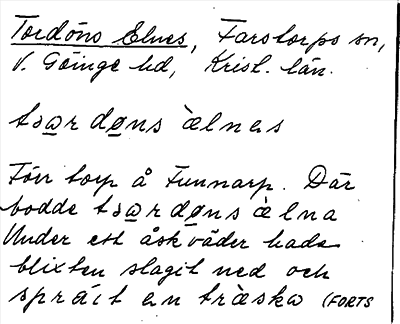 Tordöns Elnes, Farstorps sn,
V. Göinge hd, Krist. län.
tɔar døns àlnas
Förr torp å Funnarp. Där
bodde tɔar døns àlna
Under ett åskväder hade
blixten slagit ned och
spräit en tràska (FORTS